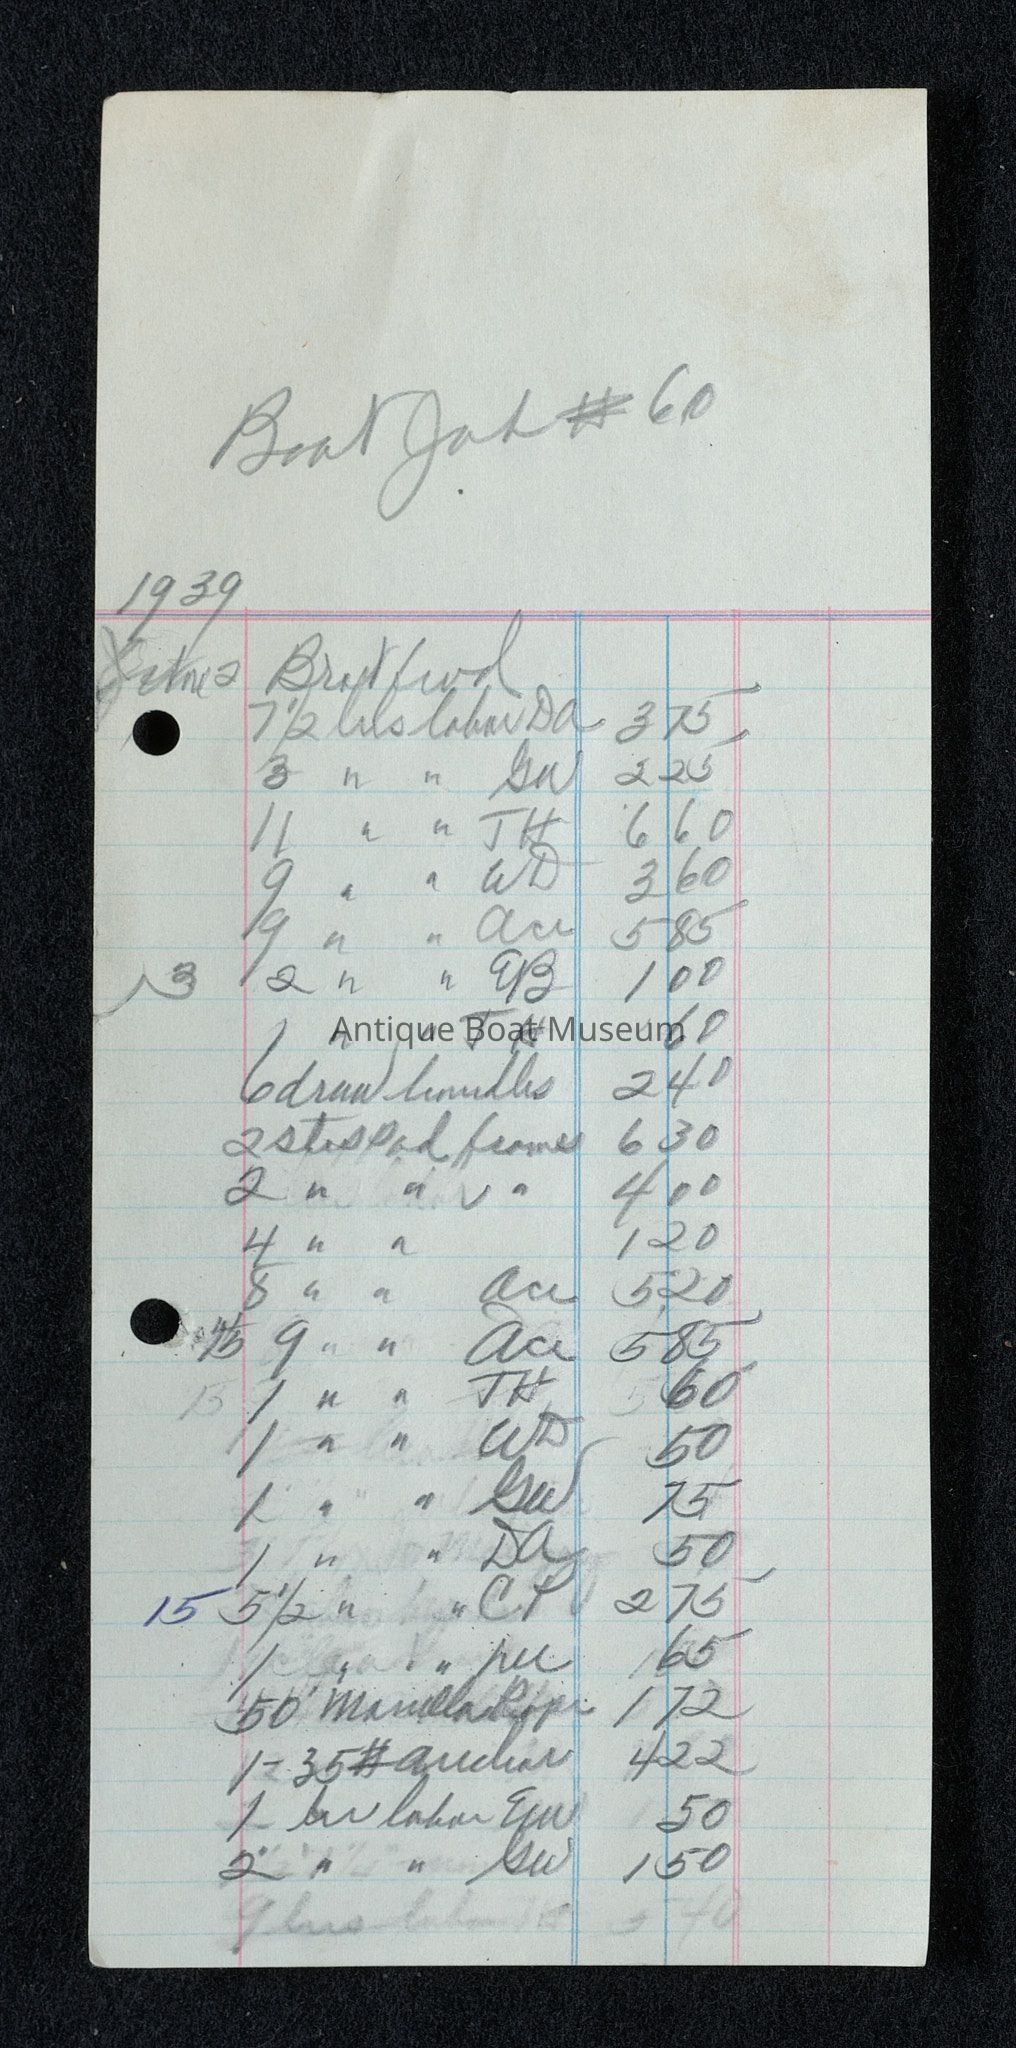 Boat Job # 60
1939
June 2 Brot fwd
7 1/2 hrs labor DA 3 75
3 " " GW 2 25
11 " " TH 6 60
9 " " WD 3 60
9 " " Ace 5 85
3 2 " " EB 1 00
1 " " TH 60
Antique Boat Museum
6 draw handles 2 40
2 step pad frames 6 30
2 " " " 4 00
4 " " 1 20
8 " " Ace 5 20
9 " " Ace 5 85
1 " " TH 60
1 " " WD 50
1 " " GW 75
1 " " DA 50
15 5 1/2 " " CP 2 75
1 " " 65
50' Manilla Rope 1 72
1- 35# anchor 4 22
1- hr labor EW 50
2 " " GW 1 50
9 hrs labor TH 5 40